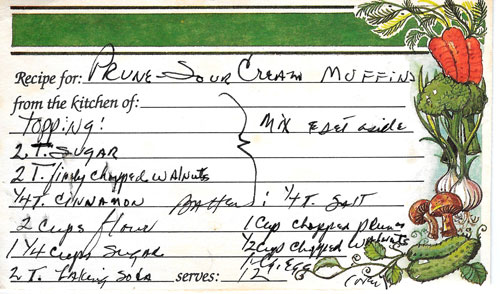 Recipe for: Prune-Sour Cream Muffins
from the kitchen of:
Topping! Mix & set aside
2 T. Sugar
2 T. finely chopped walnuts
1/4 t. Cinnamon Batter: 1/4 t. Salt
2 cups flour 1 cup chopped prunes
1 1/4 cups Sugar 1/2 cup chopped walnuts
2 T. baking Soda serves: 12 1-Lg. Egg
(over)